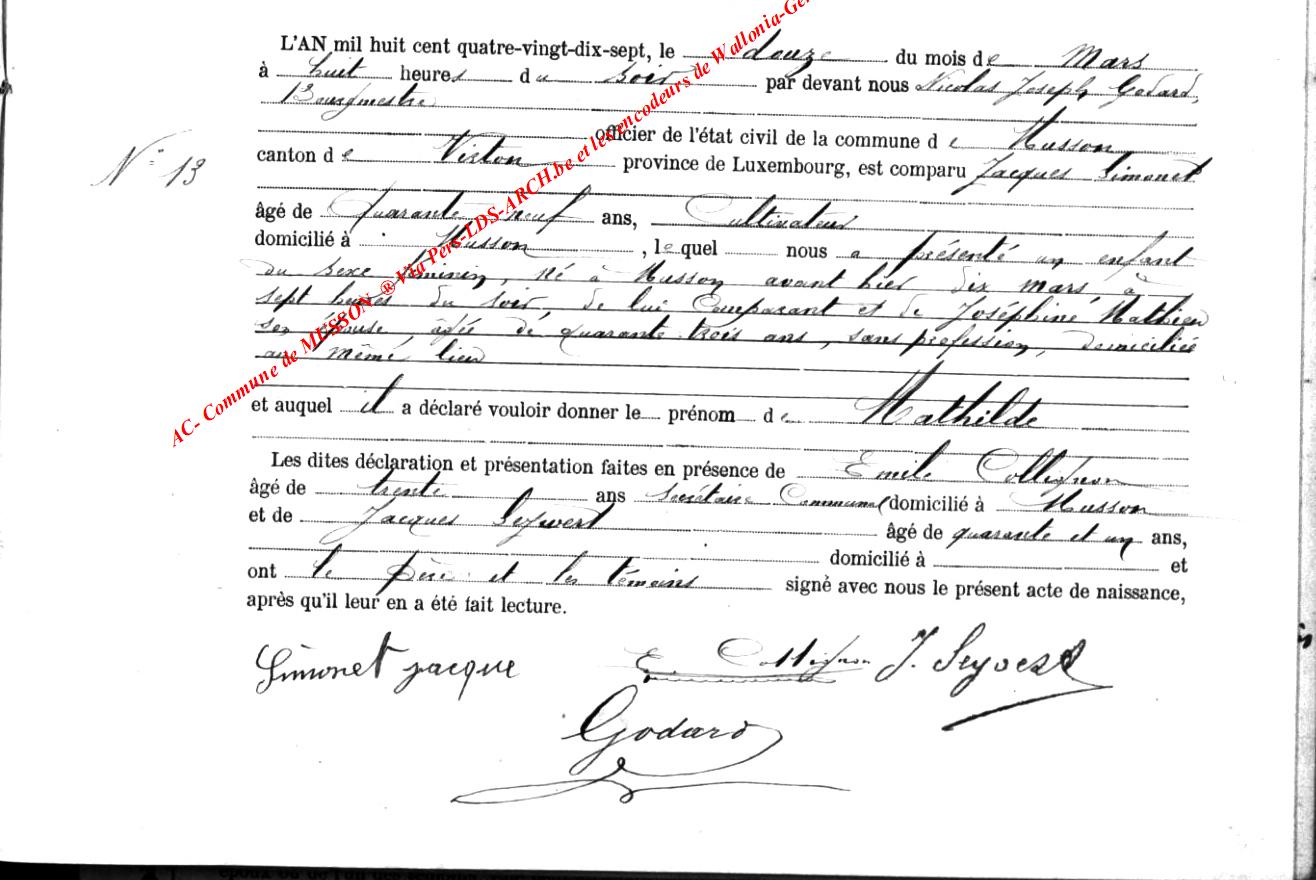 L'AN mil huit cent quatre-vingt-dix-sept, le douze du mois de Mars
à huit heures du soir par devant nous Nicolas Joseph Godard,
Bourgmestre
officier de l'état civil de la commune de Musson
N° 13
canton de Virton province de Luxembourg, est comparu Jacques Simonet
âgé de Quarante neuf ans, Cultivateur
domicilié à Musson, lequel nous a présenté un enfant
du sexe féminin, né à Musson avant hier dix mars, à
sept heures du soir, de lui Comparant et de Joséphine Mathieu
son épouse, âgée de quarante trois ans, sans profession, domiciliée
au même lieu
et auquel il a déclaré vouloir donner le prénom de Mathilde
Les dites déclaration et présentation faites en présence de Emile Collignon
âgé de trente ans Secrétaire Communal domicilié à Musson
et de Jacques Seywert âgé de quarante et un ans,
domicilié à et
ont le père et les témoins signé avec nous le présent acte de naissance,
après qu'il leur en a été fait lecture.
Simonet jacque E. Collignon J. Seywert
Godard
AC- Commune de MUSSON ® Via Pers-LDS-ARCH.be et les encodeurs de Wallonia-Ge